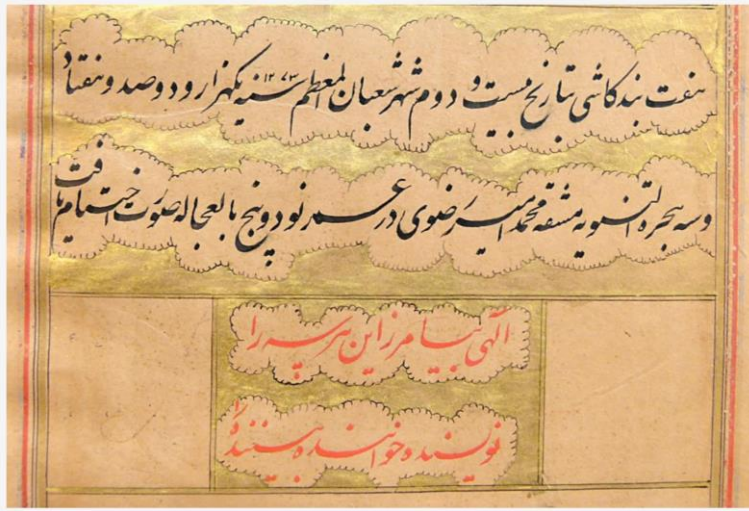 هفت بند کاشی بتاریخ بیست و دوم شهر شعبان المعظم ۱۲۷۳ سنه یکهزار و دوصد و هفتاد
و سه هجرة النبویه مشقه محمد امیر رضوی در عمر نود و پنج بالعجاله صورت اختتام یافت
الهی بیامرز این هر سه را
نویسنده خواننده بیننده را